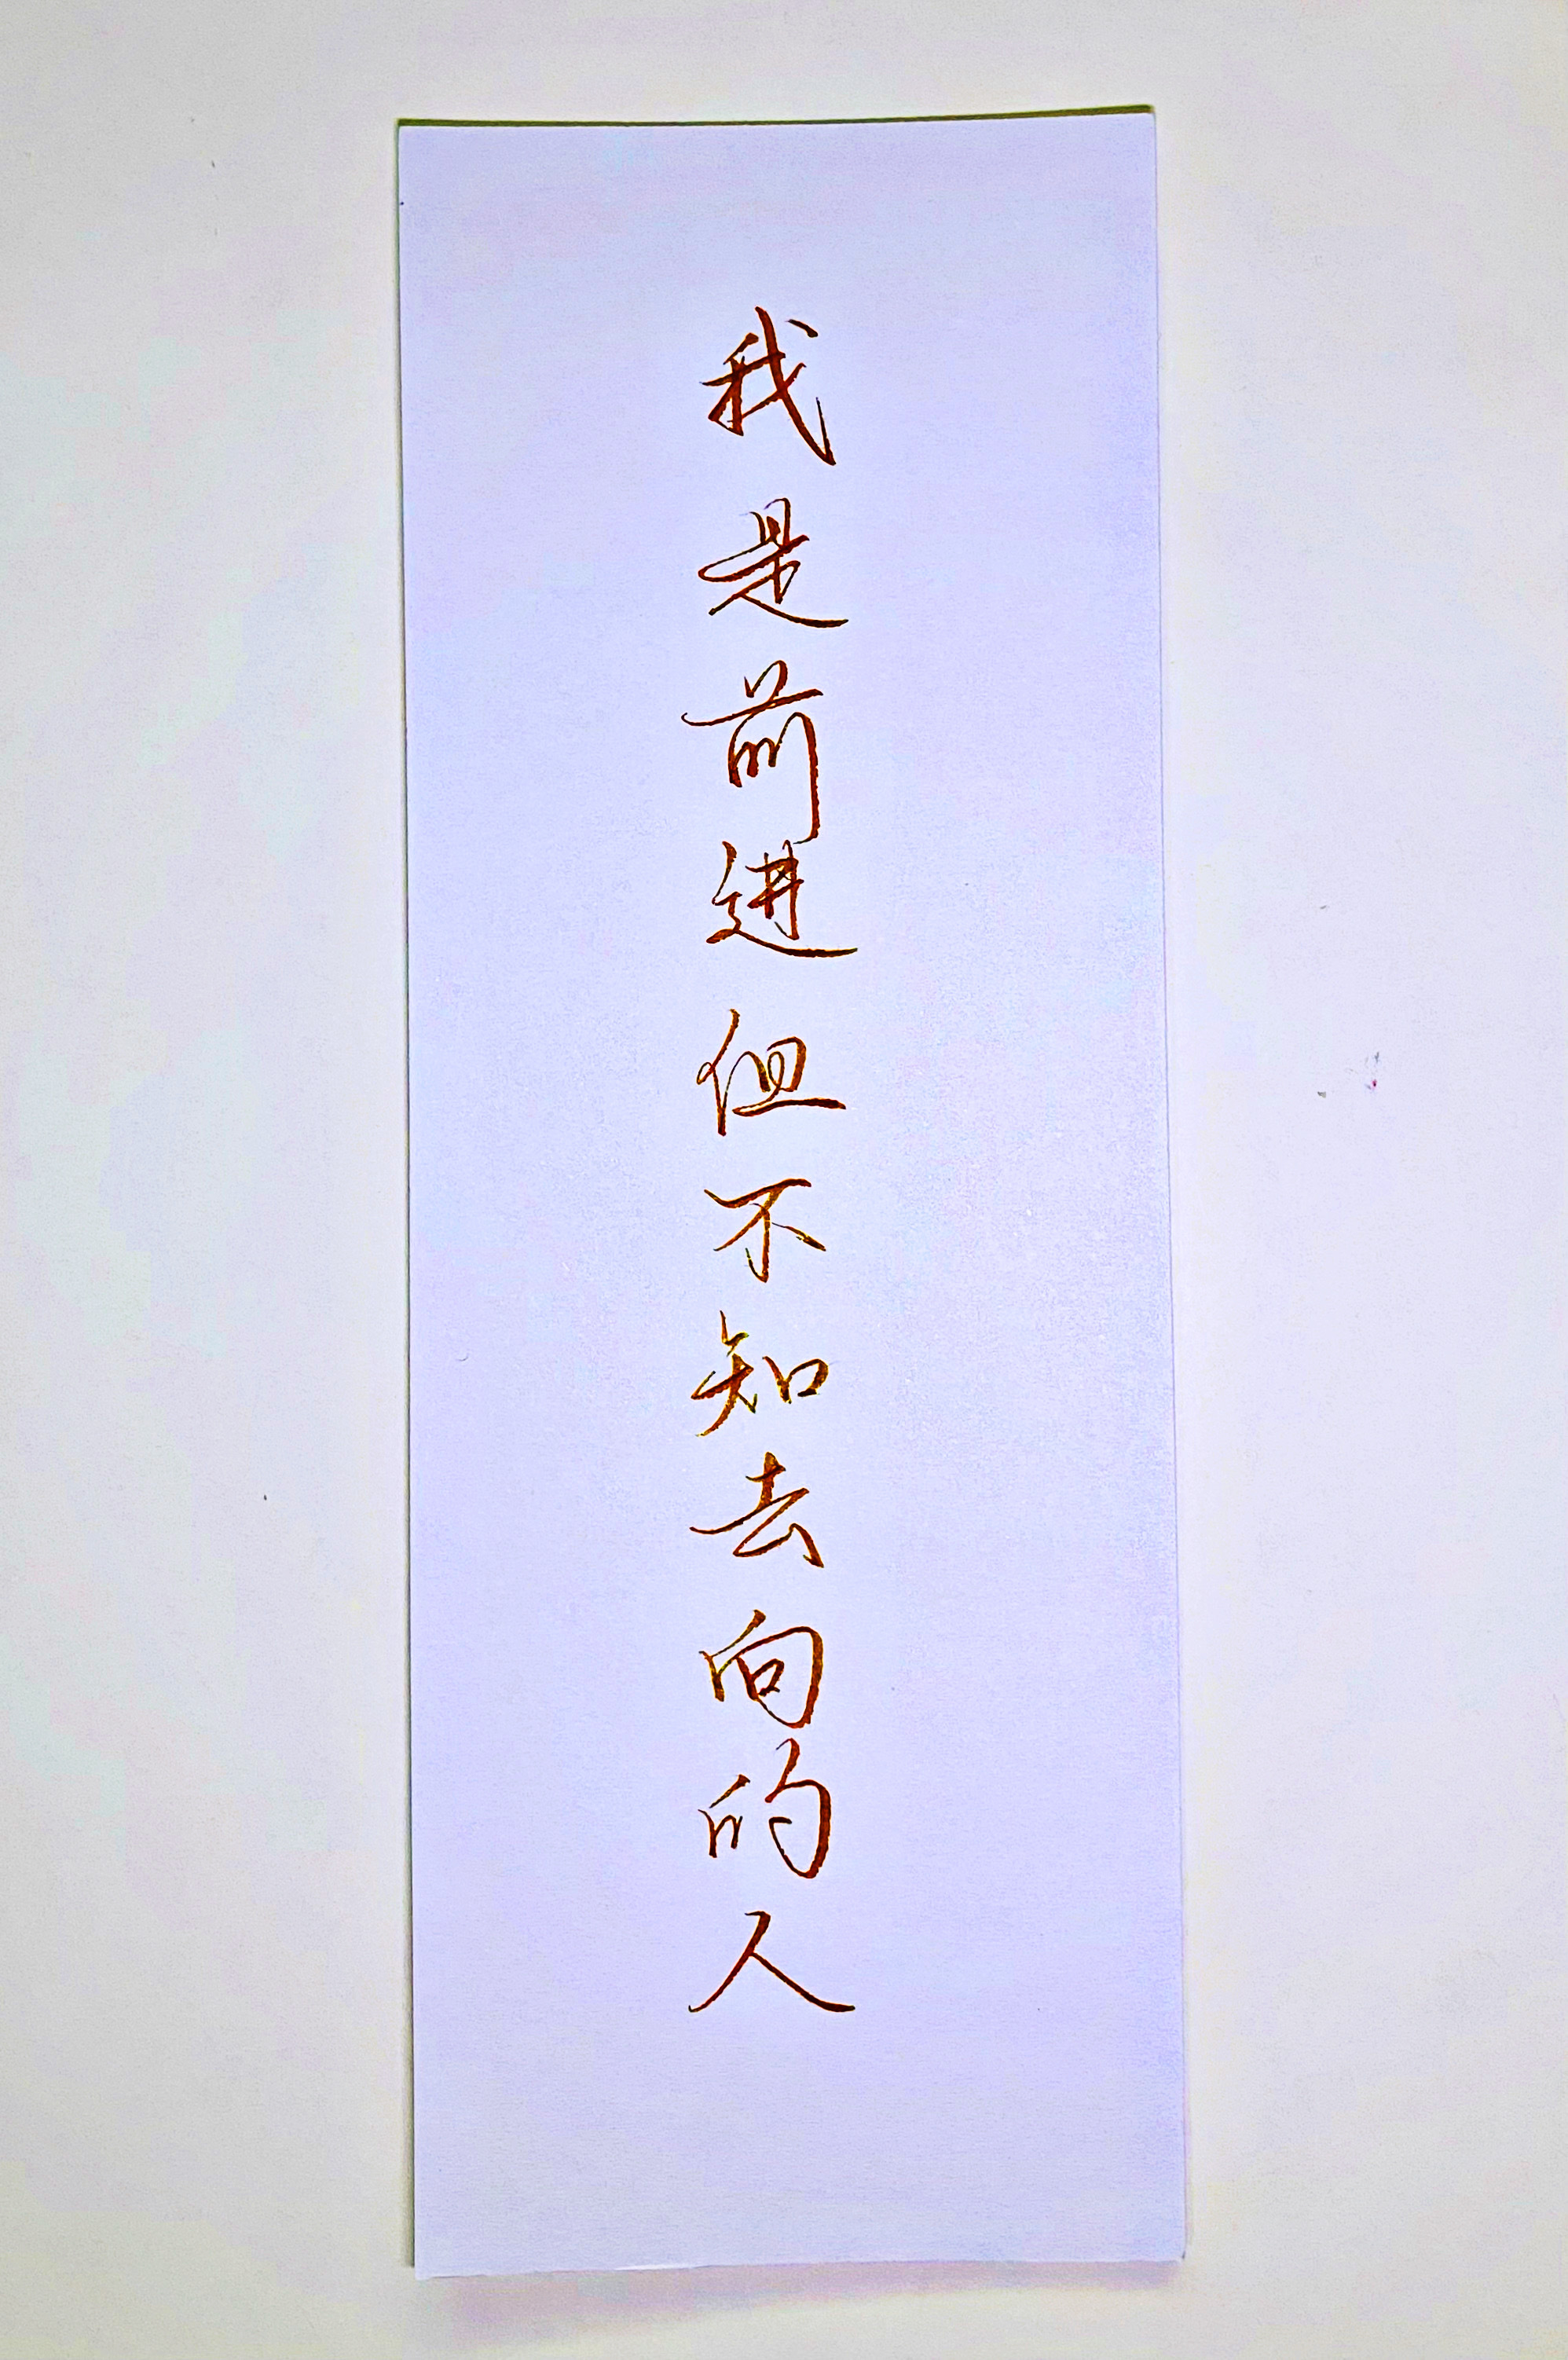 我是前进但不知去向的人